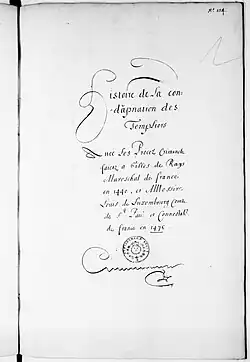 Histoire de la con-
dãpnation des
Templiers
Auec les Procez Criminels
faictz a Gilles de Rays
Mareschal de france
en 1440, et A Messire
Louis de Luxembourg Comte
de St Paul et Connestable
de france en 1475